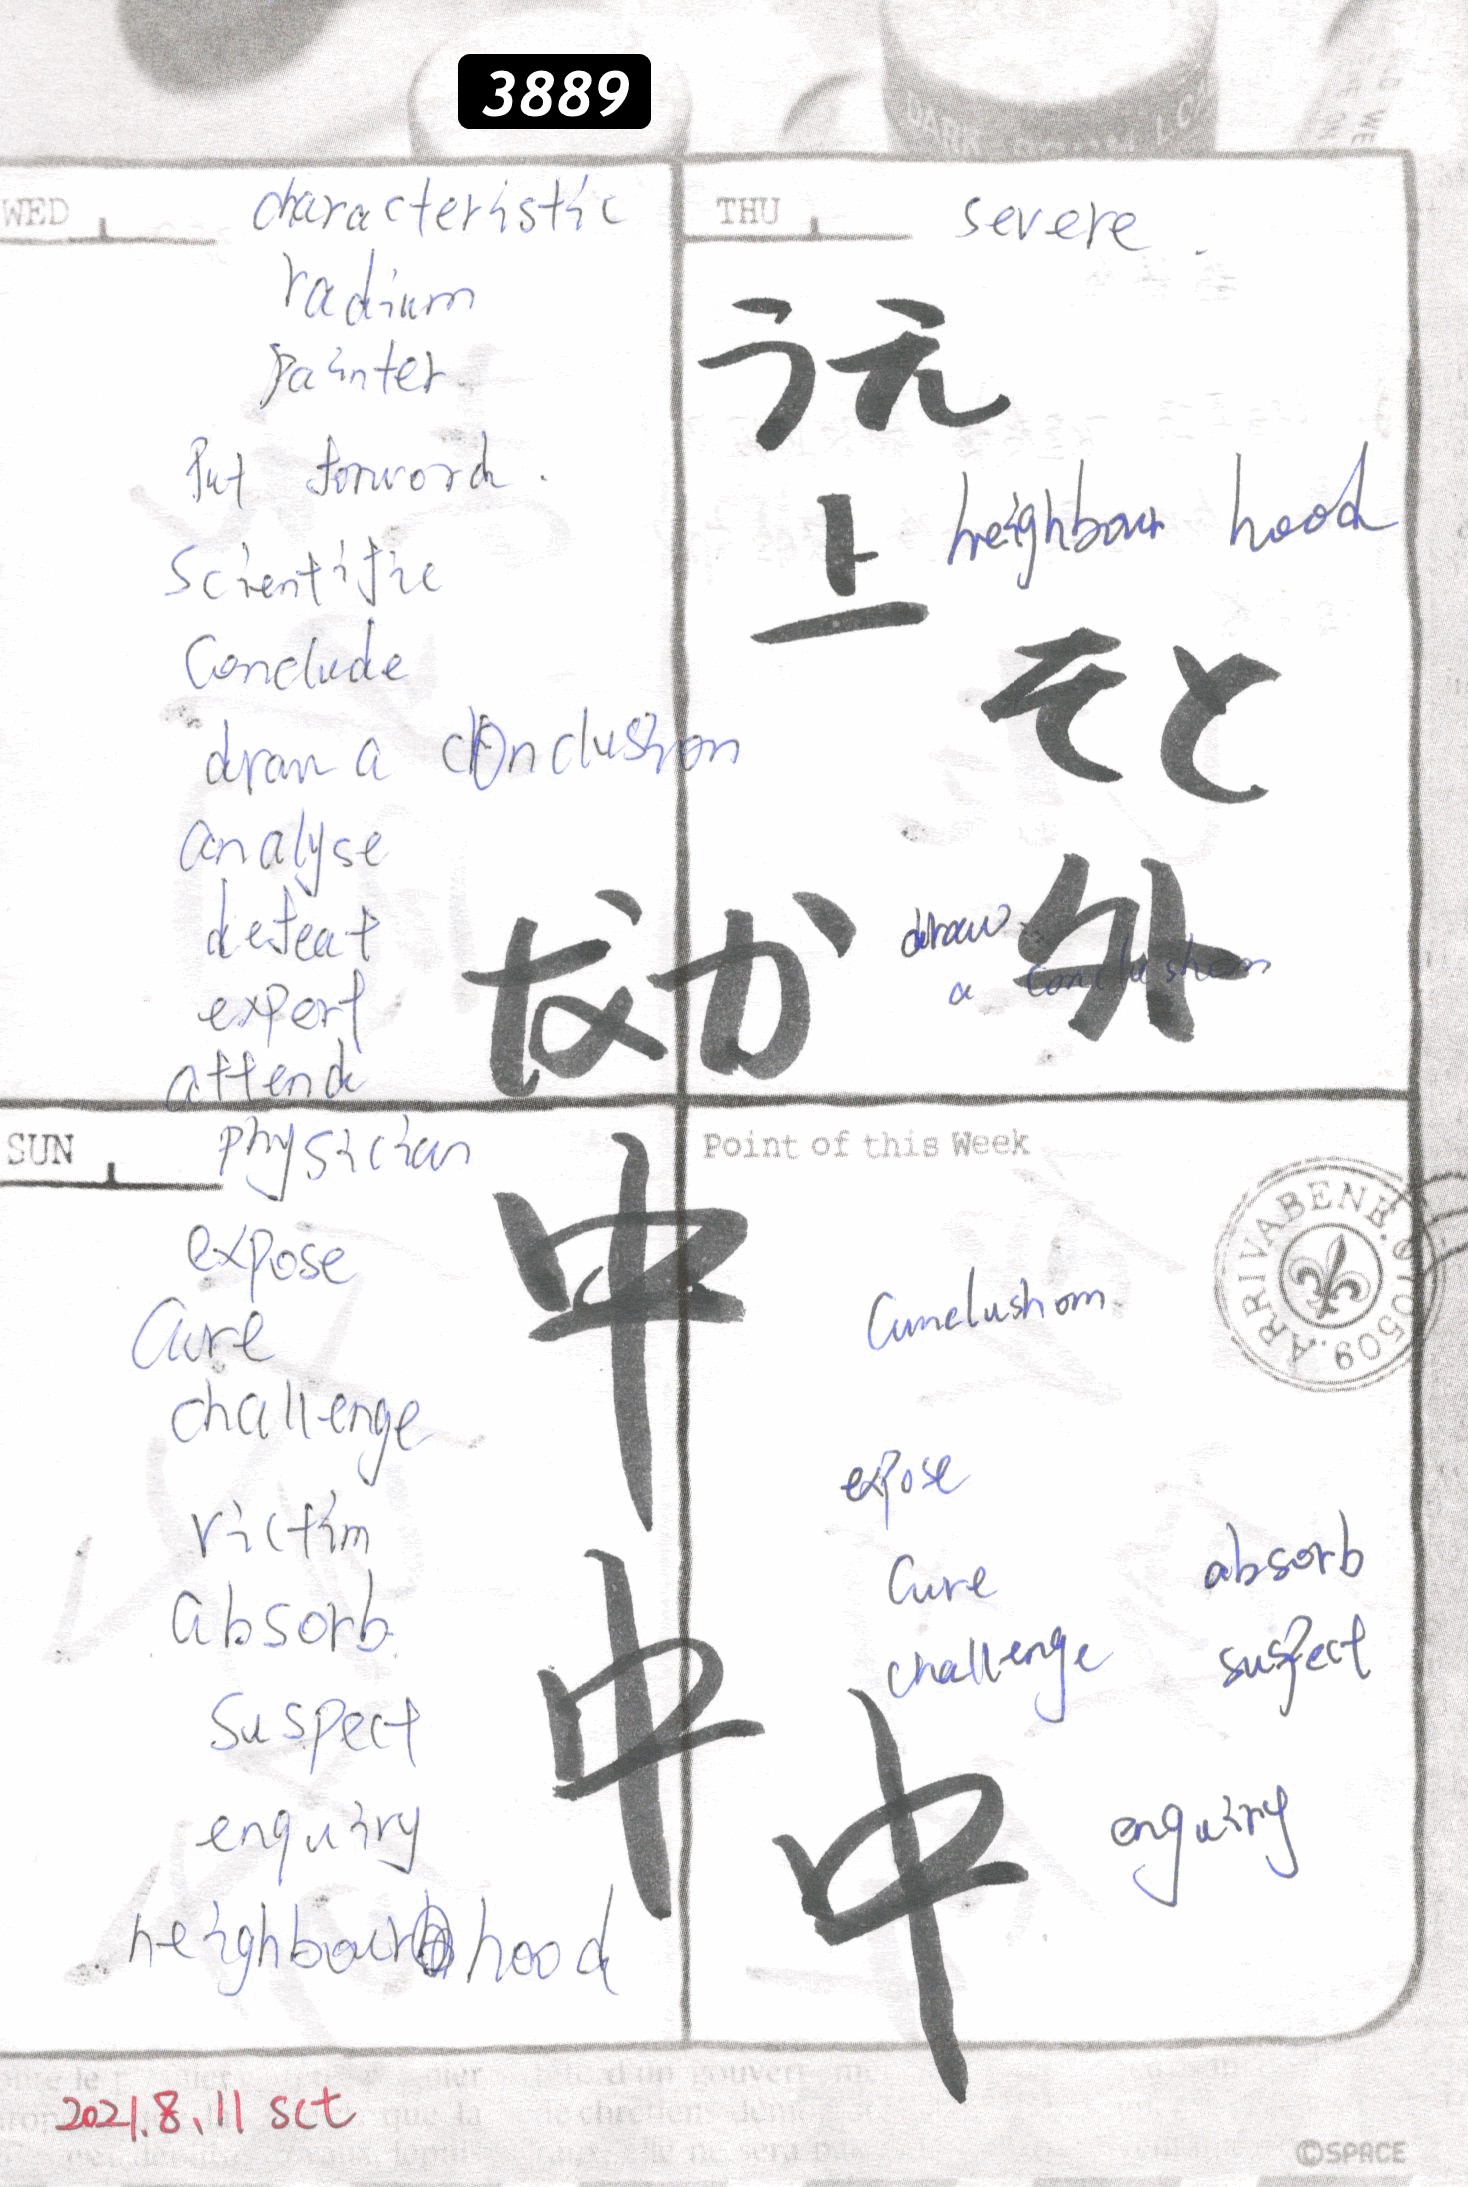 3889
DARK ROOM L.C.
WED
characteristic
radium
painter
Put forword.
Scientific
Conclude
draw a conclushon
analyse
defeat
expert
attend
THU
severe
うえ
上
neighbour hood
そと
外
draw
a conclushom
なか
中
SUN
physician
expose
Cure
challenge
victim
absorb
suspect
enquiry
neighbour hood
中
Point of this Week
ARRIVABENE. 610509.
Cunclushom
expose
Cure
absorb
challenge
suspect
中
enquiry
2021.8.11 sct
©SPACE